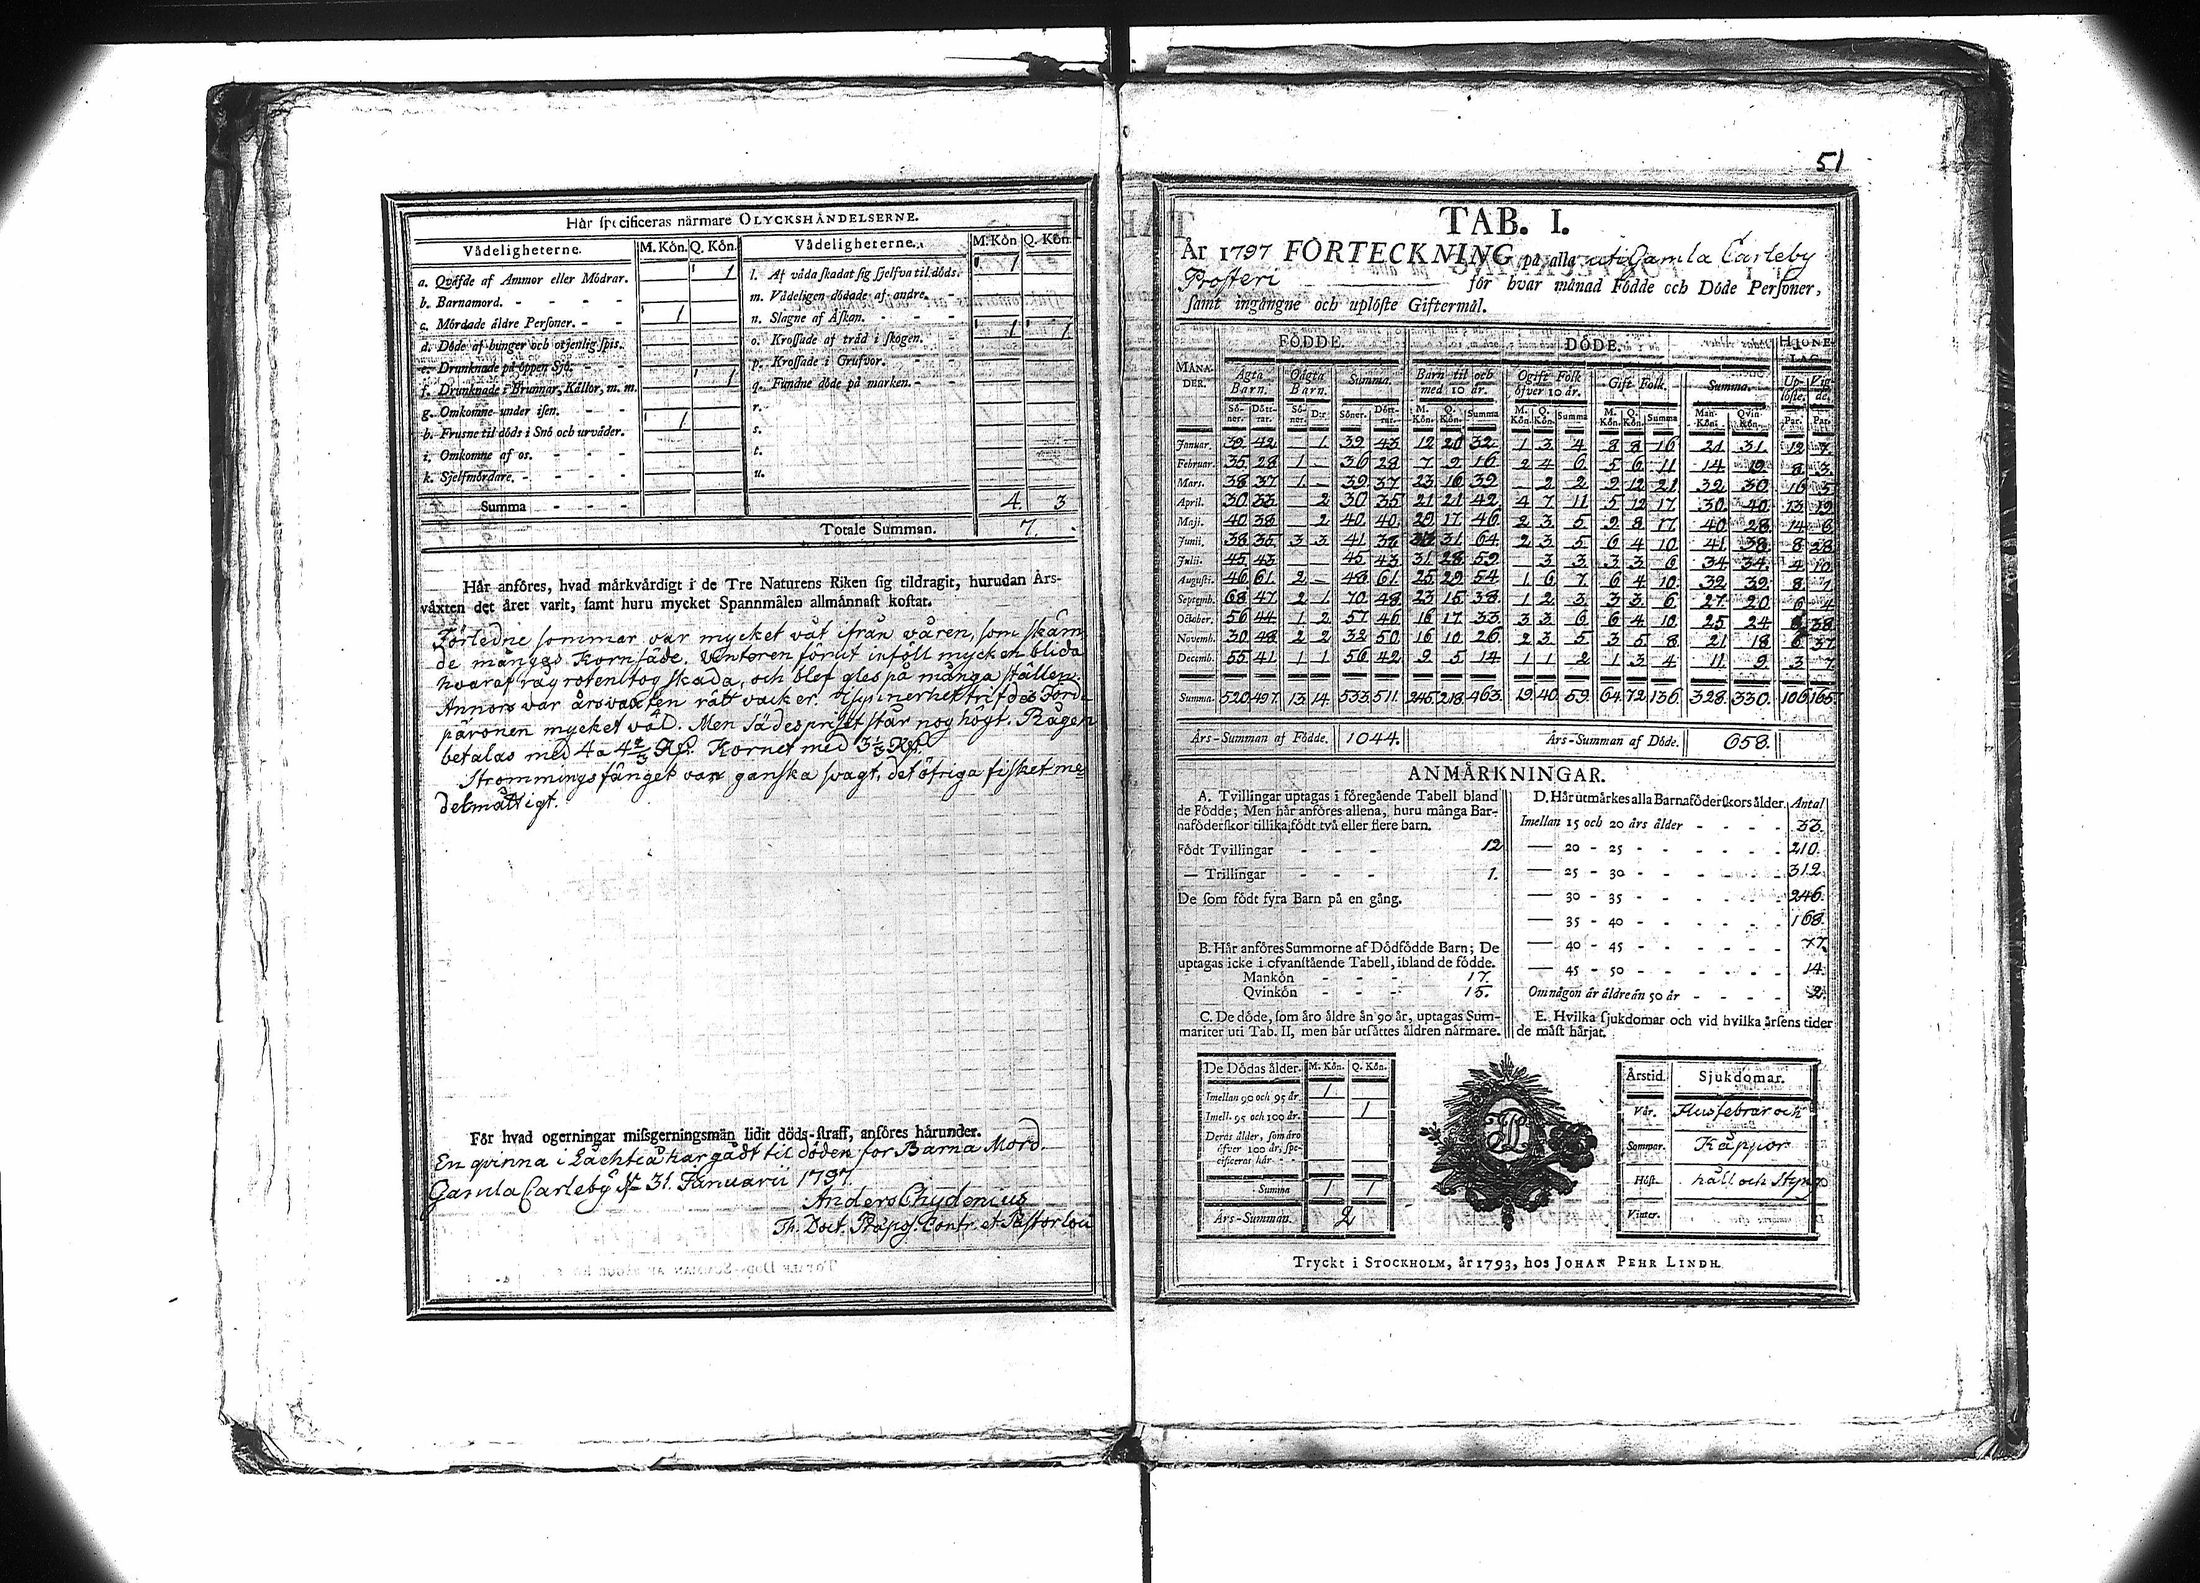 Här specificeras närmare OLYCKSHÄNDELSERNE.
Vådeligheterne. M. Kön. Q. Kön. Vådeligheterne. M. Kön Q. Kön.
a. Qväfde af Ammor eller Mödrar. 1 l. Af våda skadat sig sjelfva til döds. 1
b. Barnamord. - - - - m. Vådeligen dödade af andre. - -
c. Mördade äldre Personer. - - 1 n. Slagne af Åskan. - - - 1 1
d. Döde af hunger och otjenlig spis. o. Krossade af träd i skogen. -
e. Drunknade på öppen Sjö. - - p. Krossade i Grufvor. - -
f. Drunknade i Brunnar, Källor, m. m. 1 q. Fundne döde på marken. - -
g. Omkomne under isen. - - r.
h. Frusne til döds i Snö och urväder. 1 s.
i. Omkomne af os. - - - t.
k. Sjelfmördare. - - - - u.
Summa - - - 4. 3
Totale Summan. 7.
Här anföres, hvad märkvärdigt i de Tre Naturens Riken sig tildragit, hurudan Års-
växten det året varit, samt huru mycket Spannmålen allmännast kostat.
Förledne sommar var mycket våt ifrån våren, som skäm
de mångas Kornsäde. Vinteren förut inföll mycken blida
hvaraf rågroten tog skada, och blef gles på många ställen.
Annors var årsväxten rätt vacker. Isynnerhet trifdes Jord-
päronen mycket väl. Men Sädespriset står nog högt. Rågen
betalas med 4 a 4 2/3 Rd. Kornet med 3 1/3 Rd.
Strömmingsfänget var ganska svagt, det öfriga fisket me-
delmåttigt.
För hvad ogerningar missgerningsmän lidit döds-straff, anföres härunder.
En qvinna i Lachteå har gådt til döden for Barna Mord.
Gamla Carleby d. 31. Januarii 1797.
Anders Chydenius
Th. Doct. Præpos. Contr. et Pastor loci
51
TAB. I.
År 1797 FÖRTECKNING på alla uti Gamla Carleby
Prosteri för hvar månad Födde och Döde Personer,
samt ingångne och uplöste Giftermål.
FÖDDE. DÖDE. HJONE-LAG.
MÅNA-DER. Ägta Barn. Oägta Barn. Summa. Barn til och med 10 år. Ogift Folk öfver 10 år. Gift Folk. Summa. Up-löste. Vig-de.
Sö-ner. Dött-rar. Sö-ner. D:r Söner. Dött-rar. M. Kön. Q. Kön. Summa M. Kön. Q. Kön. Summa M. Kön. Q. Kön. Summa Man-Kön. Qvin-Kön. Par. Par.
Januar. 39 42 1 39 43 12 20 32 1 3 4 8 8 16 21 31 12 7
Februar. 35 28 1 - 36 28 7 9 16 2 4 6 5 6 11 14 19 8 3
Mars. 38 37 1 - 39 37 23 16 39 - 2 2 9 12 21 32 30 16 5
April. 30 33 2 30 35 21 21 42 4 7 11 5 12 17 30 40 13 19
Maji. 40 38 2 40 40 29 17 46 2 3 5 9 8 17 40 28 14 6
Junii. 38 35 3 3 41 38 33 31 64 2 3 5 6 4 10 41 38 8 28
Julii. 45 43 45 43 31 28 59 3 3 3 3 6 34 34 4 10
Augusti. 46 61 2 - 48 61 25 29 54 1 6 7 6 4 10 32 39 8 1
Septemb. 68 47 2 1 70 48 23 15 38 1 2 3 3 3 6 27 20 6 4
October. 56 44 1 2 57 46 16 17 33 3 3 6 6 4 10 25 24 8 38
Novemb. 30 48 2 2 32 50 16 10 26 2 3 5 3 5 8 21 18 6 37
Decemb. 55 41 1 1 56 42 9 5 14 1 1 2 1 3 4 11 9 3 7
Summa. 520 497 13 14 533 511 245 218 463 19 40 59 64 72 136 328 330 106 165
Års-Summan af Födde. 1044. Års-Summan af Döde. 658.
ANMÄRKNINGAR.
A. Tvillingar uptagas i föregående Tabell bland
de Födde; Men här anföres allena, huru många Bar-
naföderskor tillika födt två eller flere barn.
Födt Tvillingar - - - 12
— Trillingar - - - 1.
De som födt fyra Barn på en gång.
B. Här anföres Summorne af Dödfödde Barn; De
uptagas icke i ofvanstående Tabell, ibland de födde.
Mankön - - - 17.
Qvinkön - - - 15.
C. De döde, som äro äldre än 90 år, uptagas Sum-
mariter uti Tab. II, men här utsättes åldren närmare.
D. Här utmärkes alla Barnaföderskors ålder. Antal
Imellan 15 och 20 års ålder - - - - 33.
— 20 - 25 - - - - - - 210.
— 25 - 30 - - - - - - 312
— 30 - 35 - - - - - - 246.
— 35 - 40 - - - - - - 168.
— 40 - 45 - - - - - - 77.
— 45 - 50 - - - - - - 14.
Om någon är äldre än 50 år - - - - 2.
E. Hvilka sjukdomar och vid hvilka årsens tider
de mäst härjat.
De Dödas ålder. M. Kön. Q. Kön.
Imellan 90 och 95 år 1
Imell. 95 och 100 år. 1
Deras ålder, som äro
öfver 100 år, spe-
cificeras här - -
Summa 1 1
Års-Summan. 2
Årstid. Sjukdomar.
Vår. Flussfebrar och
Sommar. Kåppor
Höst. håll och Styng
Vinter.
Tryckt i STOCKHOLM, år 1793, hos JOHAN PEHR LINDH.